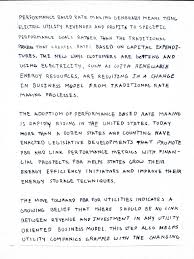 PERFORMANCE BASED RATE MAKING GENERALLY MEANS TYING
ELECTRIC UTILITY REVENUES AND PROFITS TO SPECIFIC
PERFORMANCE GOALS RATHER THAN THE TRADITIONAL
THAT RATES BASED ON CAPITAL EXPENDI-
TURES. THE NEW WAYS CUSTOMERS ARE GETTING AND
USING ELECTRICITY, SUCH AS WITH RENEWABLE
ENERGY RESOURCES, ARE RESULTING IN A CHANGE
IN BUSINESS MODEL FROM TRADITIONAL RATE
MAKING PROCESSES.
THE ADOPTION OF PERFORMANCE BASED RATE MAKING
IS RAPIDLY RISING IN THE UNITED STATES. TODAY
MORE THAN A DOZEN STATES AND COUNTING HAVE
ENACTED LEGISLATIVE DEVELOPMENTS THAT PROMOTE
PBR AND LINK PERFORMANCE METRICS WITH FINAN-
CIAL PROSPECTS PBR HELPS STATES GROW THEIR
ENERGY EFFICIENCY INITIATIVES AND IMPROVE THEIR
ENERGY STORAGE TECHNIQUES.
THE MOVE TOWARD PBR FOR UTILITIES INDICATES A
GROWING BELIEF THAT THERE SHOULD BE NO LINK
BETWEEN REVENUE AND INVESTMENT IN ANY UTILITY
ORIENTED BUSINESS MODEL. THIS STEP ALSO HELPS
UTILITY COMPANIES GRAPPLE WITH THE CHANGING